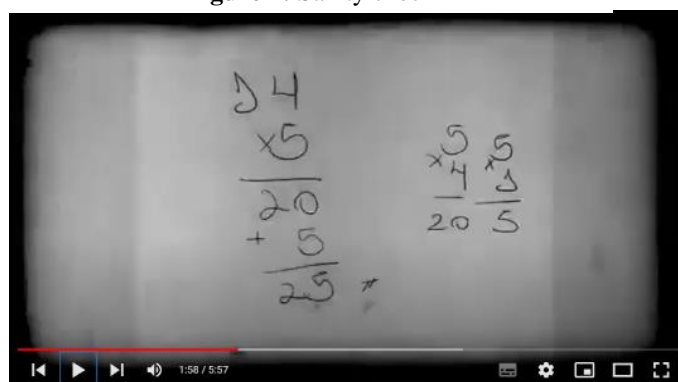 14
×5
20
+ 5
25
5 5
×4 ×1
20 5
1:58 / 5:57